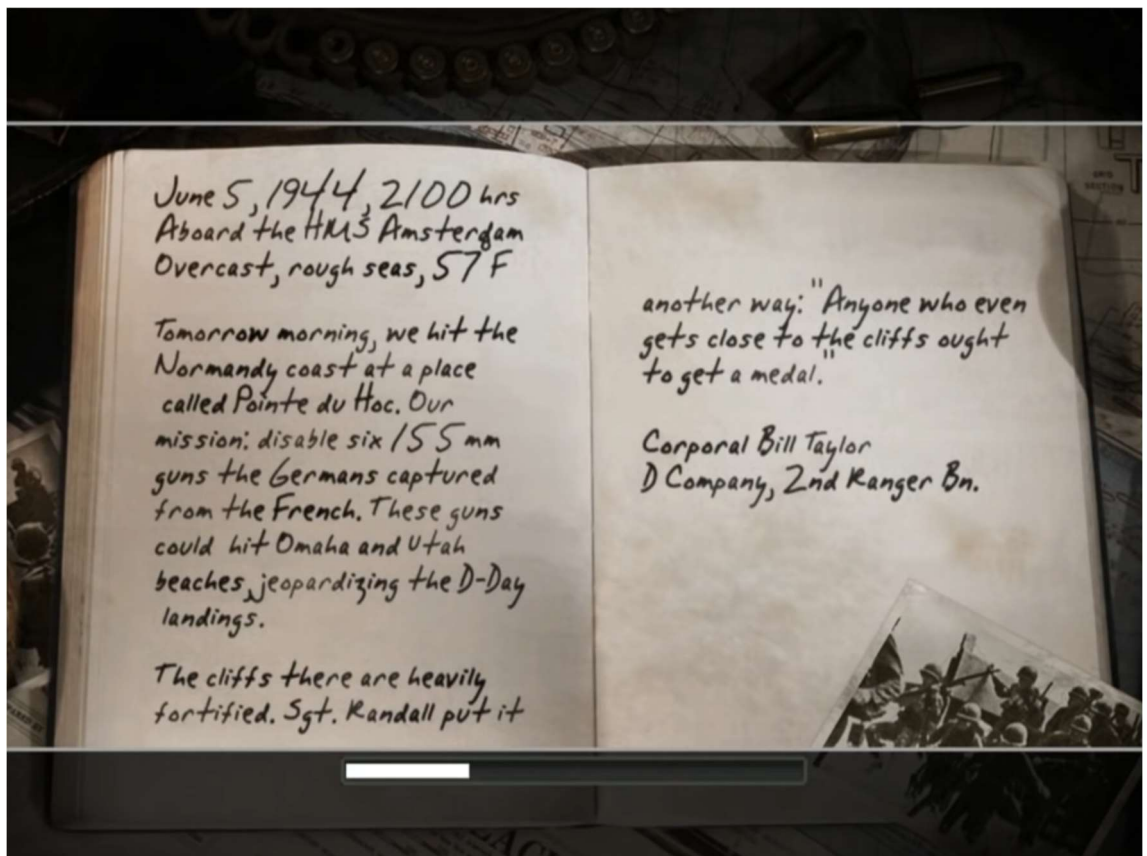 June 5, 1944, 2100 hrs
Aboard the HMS Amsterdam
Overcast, rough seas, 57 F
Tomorrow morning, we hit the
Normandy coast at a place
called Pointe du Hoc. Our
mission: disable six 155 mm
guns the Germans captured
from the French. These guns
could hit Omaha and Utah
beaches, jeopardizing the D-Day
landings.
The cliffs there are heavily
fortified. Sgt. Randall put it
another way: "Anyone who even
gets close to the cliffs ought
to get a medal."
Corporal Bill Taylor
D Company, 2nd Ranger Bn.
GRID
SECTION